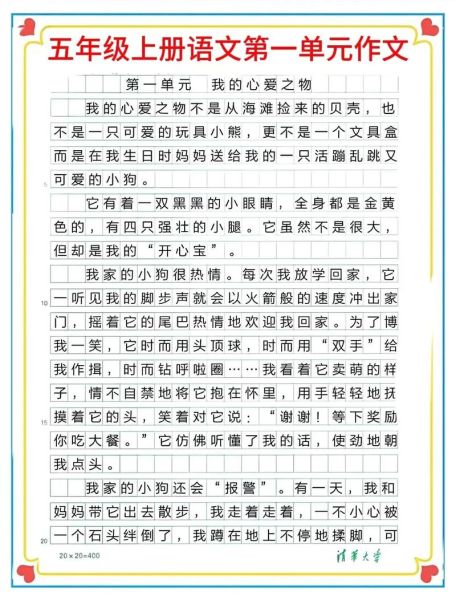 五年级上册语文第一单元作文
第一单元 我的心爱之物
我的心爱之物不是从海滩捡来的贝壳，也
不是一只可爱的玩具小熊，更不是一个文具盒
而是在我生日时妈妈送给我的一只活蹦乱跳又
可爱的小狗。
5
它有着一双黑黑的小眼睛，全身都是金黄
色的，有四只强壮的小腿。它虽然不是很大，
但却是我的“开心宝”。
我家的小狗很热情。每次我放学回家，它
10 一听见我的脚步声就会以火箭般的速度冲出家
门，摇着它的尾巴热情地欢迎我回家。为了博
我一笑，它时而用头顶球，时而用“双手”给
我作揖，时而钻呼啦圈……我看着它卖萌的样
子，情不自禁地将它抱在怀里，用手轻轻地抚
15 摸着它的头，笑着对它说：“谢谢！等下奖励
你吃大餐。”它仿佛听懂了我的话，使劲地朝
我点头。
我家的小狗还会“报警”。有一天，我和
妈妈带它出去散步，我走着走着，一不小心被
20 一个石头绊倒了，我蹲在地上不停地揉脚，可
20×20=400 清华大学